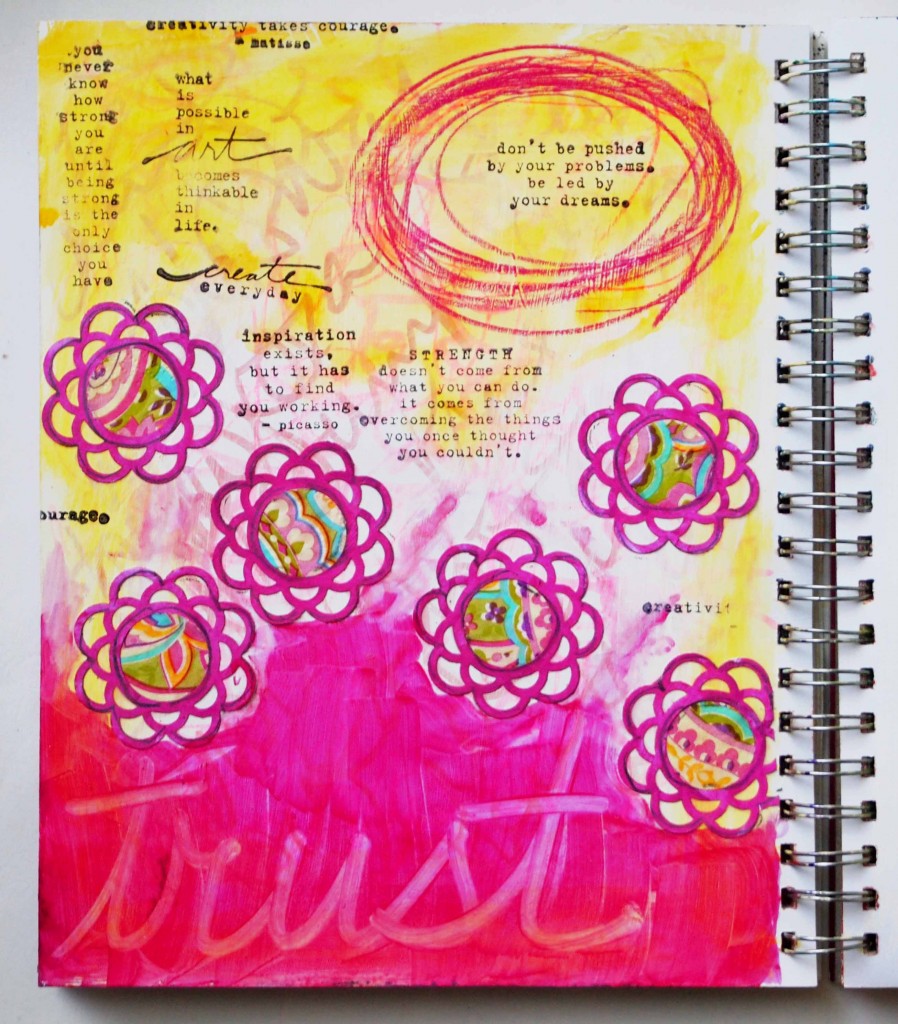 creativity takes courage.
- matisse
you
never
know
how
strong
you
are
until
being
strong
is the
only
choice
you
have
what
is
possible
in
art
becomes
thinkable
in
life.
create
everyday
don't be pushed
by your problems.
be led by
your dreams.
inspiration
exists,
but it has
to find
you working.
- picasso
STRENGTH
doesn't come from
what you can do.
it comes from
overcoming the things
you once thought
you couldn't.
ourage.
creativit
trust